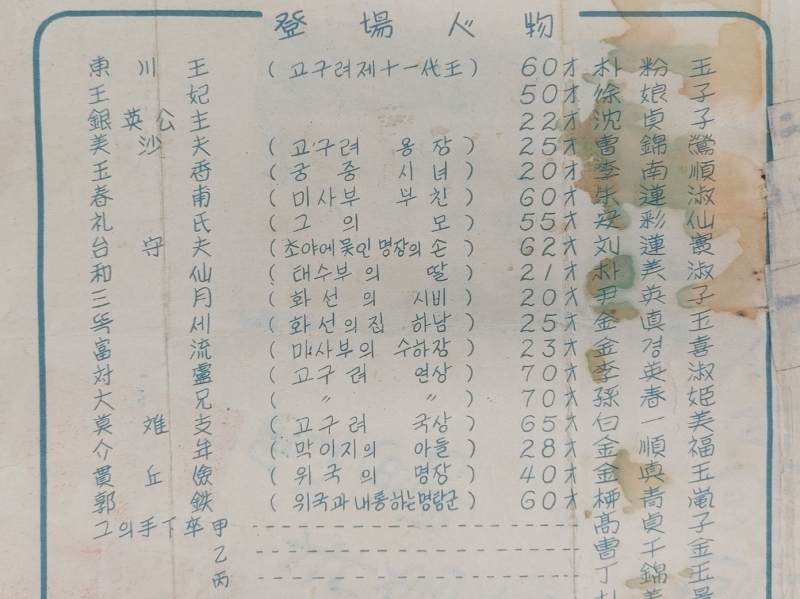 登場人物
東川王 (고구려제十一代王) 60才 朴粉玉
王妃 50才 徐娘子
銀英公主 22才 沈貞子
美沙夫 (고구려 용장) 25才 曺錦鶯
玉香 (궁중시녀) 20才 李南順
春甫 (미사부 부친) 60才 朱蓮淑
礼氏 (그의 모) 55才 安彩仙
台守夫 (초야에 묻인 명장의 손) 62才 刘蓮寶
和仙 (태수부의 딸) 21才 朴美淑
三月 (화선의 시비) 20才 尹英子
뚝세 (화선의집 하남) 25才 金眞玉
富流 (미사부의 수하장) 23才 金경喜
対盧 (고구려 연상) 70才 李英淑
大兄 ( 〃 〃 ) 70才 孫春姫
莫难支 (고구려 국상) 65才 白一美
介牟 (막이지의 아들) 28才 金順福
貫丘儉 (위국의 명장) 40才 金眞玉
郭鉄 (위국과 내통하는 명탐군) 60才 柳青嵐
그의手下卒 甲 高貞子
乙 曺千金
丙 丁錦玉